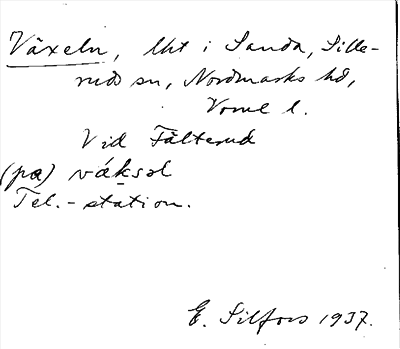 Växeln, lht i Sanda, Sille-
ruds sn, Nordmarks hd,
Vrml l.
Vid Fälterud
(pa) vák̠səl
Tel.-station.
E. Silfors 1937.